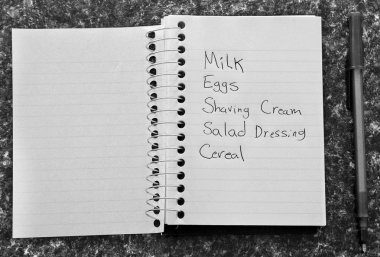 Milk
Eggs
Shaving Cream
Salad Dressing
Cereal